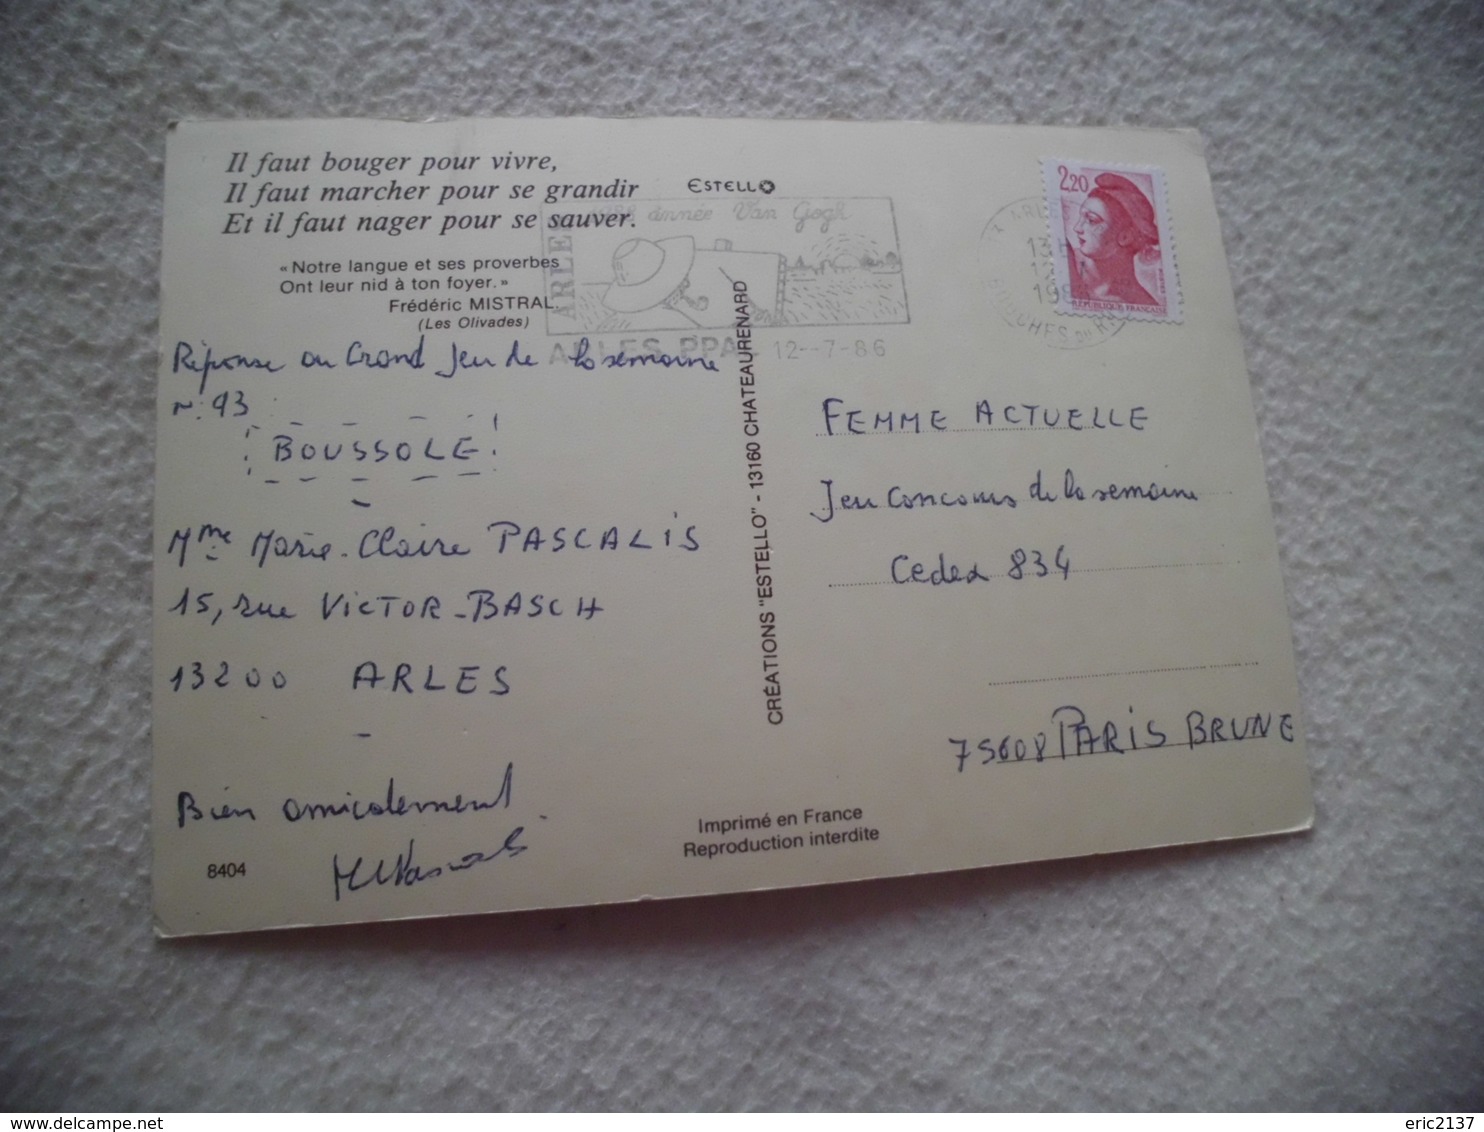 Il faut bouger pour vivre,
Il faut marcher pour se grandir
Et il faut nager pour se sauver.
«Notre langue et ses proverbes
Ont leur nid à ton foyer.»
Frédéric MISTRAL.
(Les Olivades)
ESTELLO
année Van Gogh
ARLES
ARLES PPAL 12--7-86
2,20
RÉPUBLIQUE FRANÇAISE
13 H
BOUCHES DU RH
Réponse au Grand Jeu de la semaine
n: 93
BOUSSOLE
Mme Marie-Claire PASCALIS
15, rue VICTOR-BASCH
13200 ARLES
Bien amicalement
8404
CRÉATIONS "ESTELLO" - 13160 CHATEAURENARD
Imprimé en France
Reproduction interdite
FEMME ACTUELLE
Jeu Concours de la semaine
Cedex 834
75608 PARIS BRUNE
eric2137